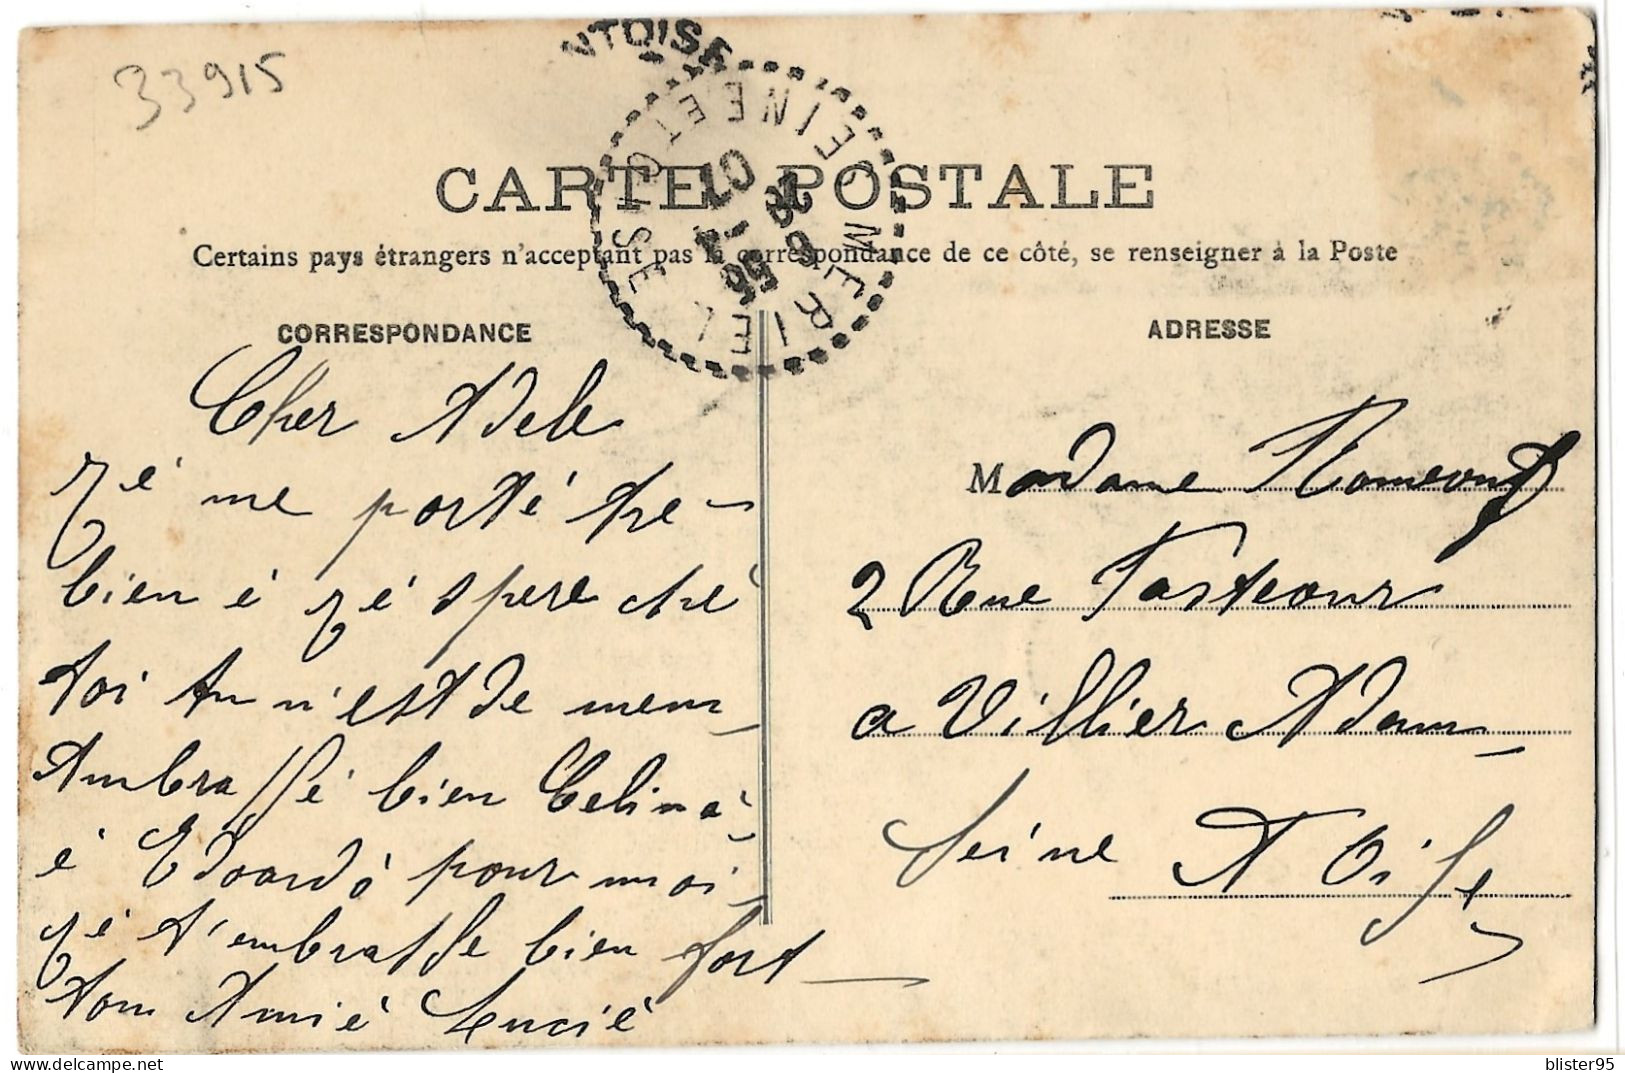 33915
NTOISE
MERIEL
SEINE ET OISE
CARTE POSTALE
Certains pays étrangers n'acceptant pas la correspondance de ce côté, se renseigner à la Poste
CORRESPONDANCE
Cher Adele
Zé me porté tre-
bien é zé spere ché
toi tu n'est de mem
Ambrassé bien Celina
é Edoardó pour moi
zé t'embrasse bien fort
tom Amié Lucié
ADRESSE
Madame
2 Rue Pasteour
a Villier Adam
Seine A Oise
blister95